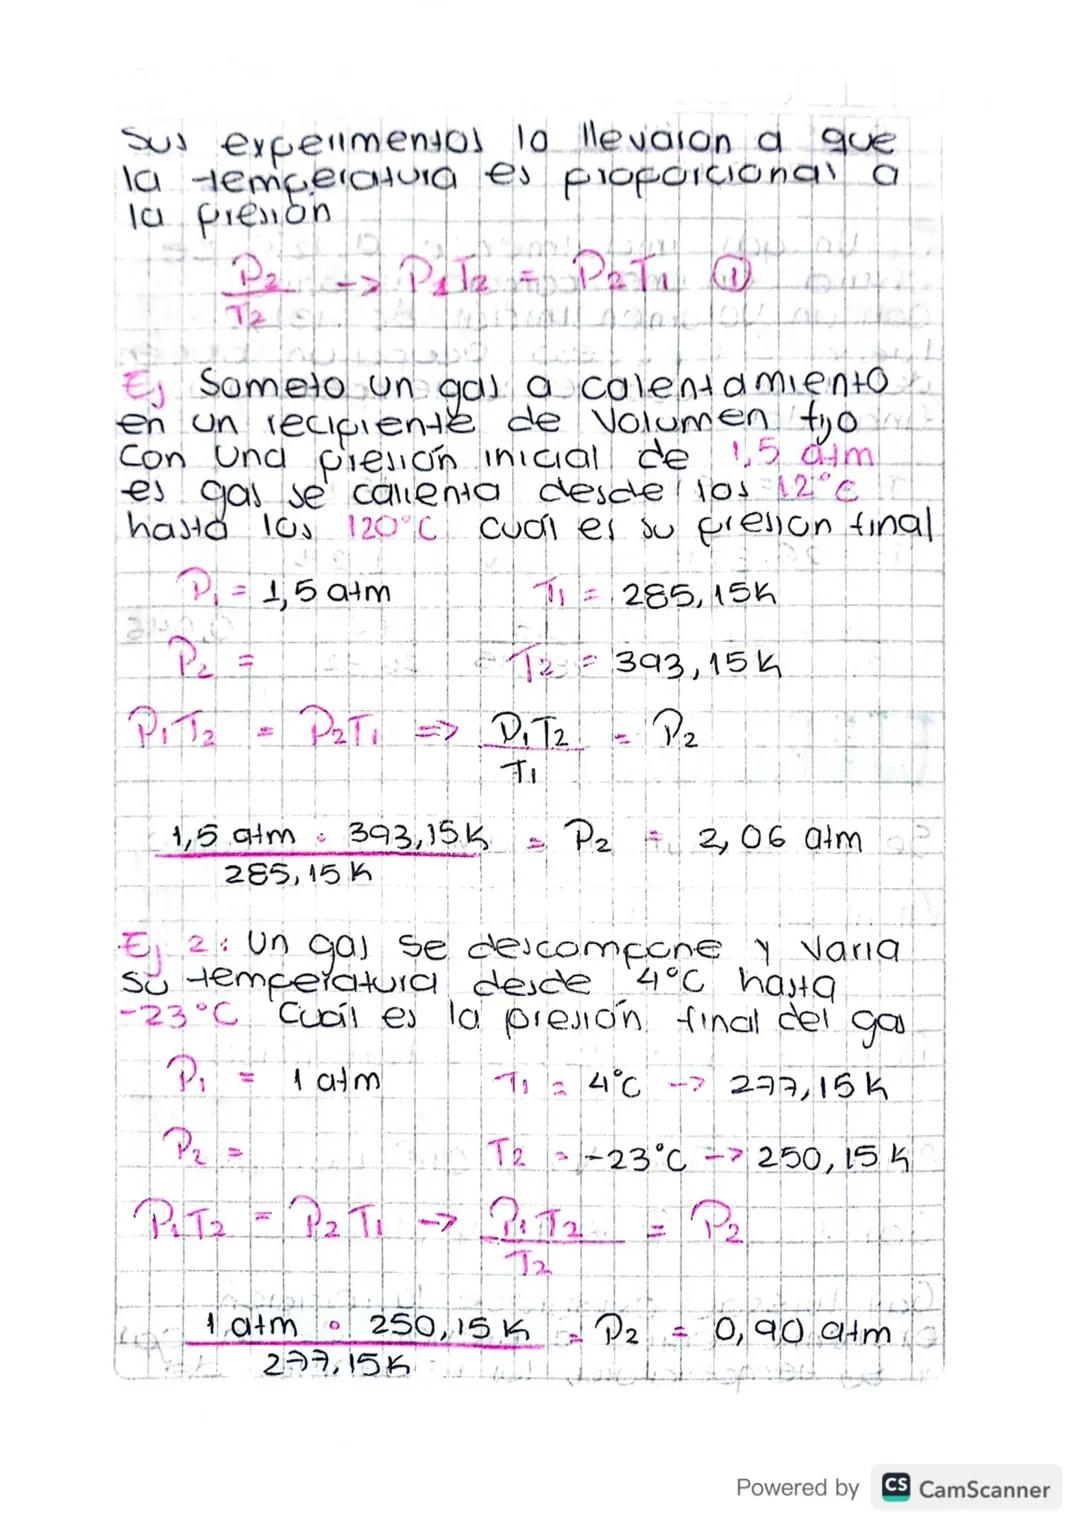 Sus experimentos lo llevaron a que
la temperatura es proporcional a
la presión
P2/T2 -> P1T2 = P2T1 (1)
Ej Someto un gas a calentamiento
en un recipiente de Volumen fijo
Con Una presión inicial de 1,5 atm
es gas se calienta desde los 12°C
hasta los 120°C cuál es su presion final
P1 = 1,5 atm T1 = 285,15K
P2 = T2 = 393,15K
P1T2 = P2T1 => P1T2/T1 = P2
1,5 atm · 393,15K / 285,15K = P2 = 2,06 atm
Ej 2: Un gas se descompone y varia
su temperatura desde 4°C hasta
-23°C Cuál es la presión final del gas
P1 = 1 atm T1 = 4°C --> 277,15K
P2 = T2 = -23°C --> 250,15K
P1T2 = P2T1 -> P1T2/T2 = P2
1 atm · 250,15K / 277,15K = P2 = 0,90 atm
Powered by CS CamScanner